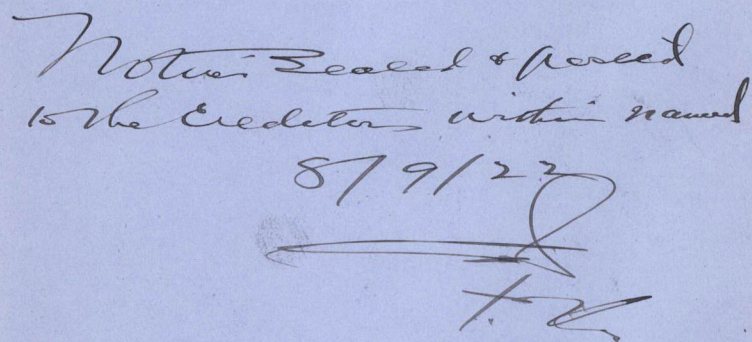 Notices Sealed & posted
to the Creditors within named
8/9/22